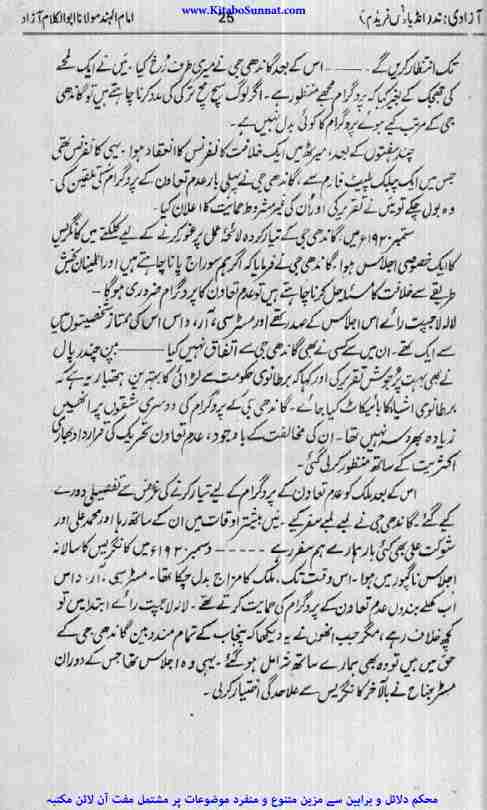 www.KitaboSunnat.com
آزادیٔ ہند (انڈیا ونس فریڈم) 25 امام الہند مولانا ابوالکلام آزاد
تک انتظار کریں گے۔ ——— اس کے بعد گاندھی جی نے میری طرف رخ کیا۔ میں نے ایک لمحے
کی جھجک کے بغیر کہا کہ یہ پروگرام مجھے منظور ہے۔ اگر لوگ سچ مچ ترکی کی مدد کرنا چاہتے ہیں تو گاندھی
جی کے مرتب کیے ہوئے پروگرام کا کوئی بدل نہیں ہے۔
چند ہفتوں کے بعد، میرٹھ میں ایک خلافت کانفرنس کا انعقاد ہوا۔ یہی کانفرنس تھی
جس میں ایک پبلک پلیٹ فارم سے، گاندھی جی نے پہلی بار عدم تعاون کے پروگرام کی تلقین کی۔
وہ بول چکے تو میں نے تقریر کی اور اُن کی غیر مشروط حمایت کا اعلان کیا۔
ستمبر ۱۹۲۰ء میں، گاندھی جی کے تیار کردہ لائحۂ عمل پر غور کرنے کے لیے کلکتے میں کانگریس
کا ایک خصوصی اجلاس ہوا۔ گاندھی جی نے فرمایا کہ اگر ہم سوراج پانا چاہتے ہیں اور اطمینان بخش
طریقے سے خلافت کا مسئلہ حل کرنا چاہتے ہیں تو عدم تعاون کا پروگرام ضروری ہوگا۔
لالہ لاجپت رائے اس اجلاس کے صدر تھے اور مسٹر سی، آر، داس اس کی ممتاز شخصیتوں میں
سے ایک تھے۔ ان میں سے کسی نے بھی گاندھی جی سے اتفاق نہیں کیا ——— بپن چندر پال
نے بھی بہت پُرجوش تقریر کی اور کہا کہ برطانوی حکومت سے لڑائی کا بہترین ہتھیار یہ ہے کہ
برطانوی اشیا کا بائیکاٹ کیا جائے۔ گاندھی جی کے پروگرام کی دوسری شقوں پر انھیں
زیادہ بھروسہ نہیں تھا۔ ان کی مخالفت کے باوجود، عدم تعاون تحریک کی قرارداد بھاری
اکثریت کے ساتھ منظور کر لی گئی۔
اس کے بعد ملک کو عدم تعاون کے پروگرام کے لیے تیار کرنے کی غرض سے تفصیلی دورے
کیے گئے۔ گاندھی جی نے لمبے لمبے سفر کیے۔ میں بیشتر اوقات میں ان کے ساتھ رہا اور محمد علی اور
شوکت علی بھی کئی بار ہمارے ہم سفر رہے ----- دسمبر ۱۹۲۰ء میں کانگریس کا سالانہ
اجلاس ناگپور میں ہوا۔ اس وقت تک، ملک کا مزاج بدل چکا تھا۔ مسٹر سی، آر، داس
اب کھلے بندوں عدم تعاون کے پروگرام کی حمایت کرتے تھے۔ لالہ لاجپت رائے ابتدا میں تو
کچھ خلاف رہے، مگر جب انھوں نے یہ دیکھا کہ پنجاب کے تمام مندوبین گاندھی جی کے
حق میں ہیں تو وہ بھی ہمارے ساتھ شامل ہو گئے۔ یہی وہ اجلاس تھا جس کے دوران
مسٹر جناح نے بالآخر کانگریس سے علاحدگی اختیار کر لی۔
محکم دلائل و براہین سے مزین متنوع و منفرد موضوعات پر مشتمل مفت آن لائن مکتبہ